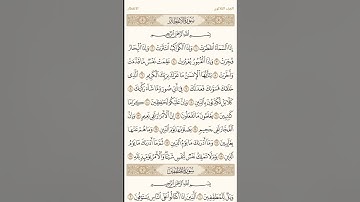 الجزء الثلاثون الانفطار
سُورَةُ الانفِطَارِ
بِسْمِ ٱللَّهِ ٱلرَّحْمَٰنِ ٱلرَّحِيمِ
إِذَا ٱلسَّمَآءُ ٱنفَطَرَتْ ١ وَإِذَا ٱلْكَوَاكِبُ ٱنتَثَرَتْ ٢ وَإِذَا ٱلْبِحَارُ
فُجِّرَتْ ٣ وَإِذَا ٱلْقُبُورُ بُعْثِرَتْ ٤ عَلِمَتْ نَفْسٌ مَّا قَدَّمَتْ
وَأَخَّرَتْ ٥ يَٰٓأَيُّهَا ٱلْإِنسَٰنُ مَا غَرَّكَ بِرَبِّكَ ٱلْكَرِيمِ ٦ ٱلَّذِي
خَلَقَكَ فَسَوَّىٰكَ فَعَدَلَكَ ٧ فِيٓ أَيِّ صُورَةٍ مَّا شَآءَ رَكَّبَكَ ٨
كَلَّا بَلْ تُكَذِّبُونَ بِٱلدِّينِ ٩ وَإِنَّ عَلَيْكُمْ لَحَٰفِظِينَ ١٠ كِرَامًا
كَٰتِبِينَ ١١ يَعْلَمُونَ مَا تَفْعَلُونَ ١٢ إِنَّ ٱلْأَبْرَارَ لَفِي نَعِيمٍ ١٣
وَإِنَّ ٱلْفُجَّارَ لَفِي جَحِيمٍ ١٤ يَصْلَوْنَهَا يَوْمَ ٱلدِّينِ ١٥ وَمَا هُمْ عَنْهَا
بِغَآئِبِينَ ١٦ وَمَآ أَدْرَىٰكَ مَا يَوْمُ ٱلدِّينِ ١٧ ثُمَّ مَآ أَدْرَىٰكَ مَا يَوْمُ
ٱلدِّينِ ١٨ يَوْمَ لَا تَمْلِكُ نَفْسٌ لِّنَفْسٍ شَيْـًٔا وَٱلْأَمْرُ يَوْمَئِذٍ لِّلَّهِ ١٩
سُورَةُ المُطَفِّفِينَ
بِسْمِ ٱللَّهِ ٱلرَّحْمَٰنِ ٱلرَّحِيمِ
وَيْلٌ لِّلْمُطَفِّفِينَ ١ ٱلَّذِينَ إِذَا ٱكْتَالُوا۟ عَلَى ٱلنَّاسِ يَسْتَوْفُونَ ٢